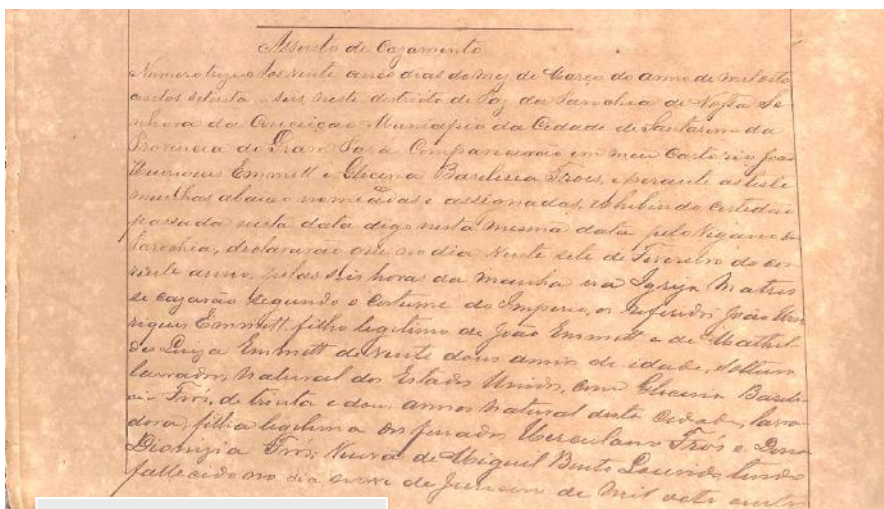 Assento de Cazamento
Numero treze. Aos vinte cinco dias do mez de Março do anno de mil oito
centos setenta e seis, neste districto de Paz da Parochia de Nossa Se
nhora da Conceição Municipio da Cidade de Santarem da
Provincia do Gram Pará Comparecerão em meu Cartorio João
Henriques Emmett e Glicena Bazilisia Froes, e perante as teste
munhas abaixo nomeadas e assignadas, exhibindo certidão
passada nesta data digo nesta mesma data pelo Vigario da
Parochia, declararão que no dia vinte sete de Fevereiro do cor
rente anno, pelas seis horas da manhã na Igreja Matriz
se cazarão segundo o costume do Imperio, os referidos João Hen
riques Emmett, filho legitimo de João Emmett e de Mathil
des Luiza Emmett de vinte dous annos de idade, solteiro
lavrador, natural dos Estados Unidos, com Glicena Bazili
sia Froes, de trinta e dous annos natural desta Cidade, lavra
dora, filha legitima os finados Herculano Frós e Dona
Dionizia Frós; Viuva de Miguel Bento Lourido, tendo
fallecido no dia nove de Janeiro de mil oito centos